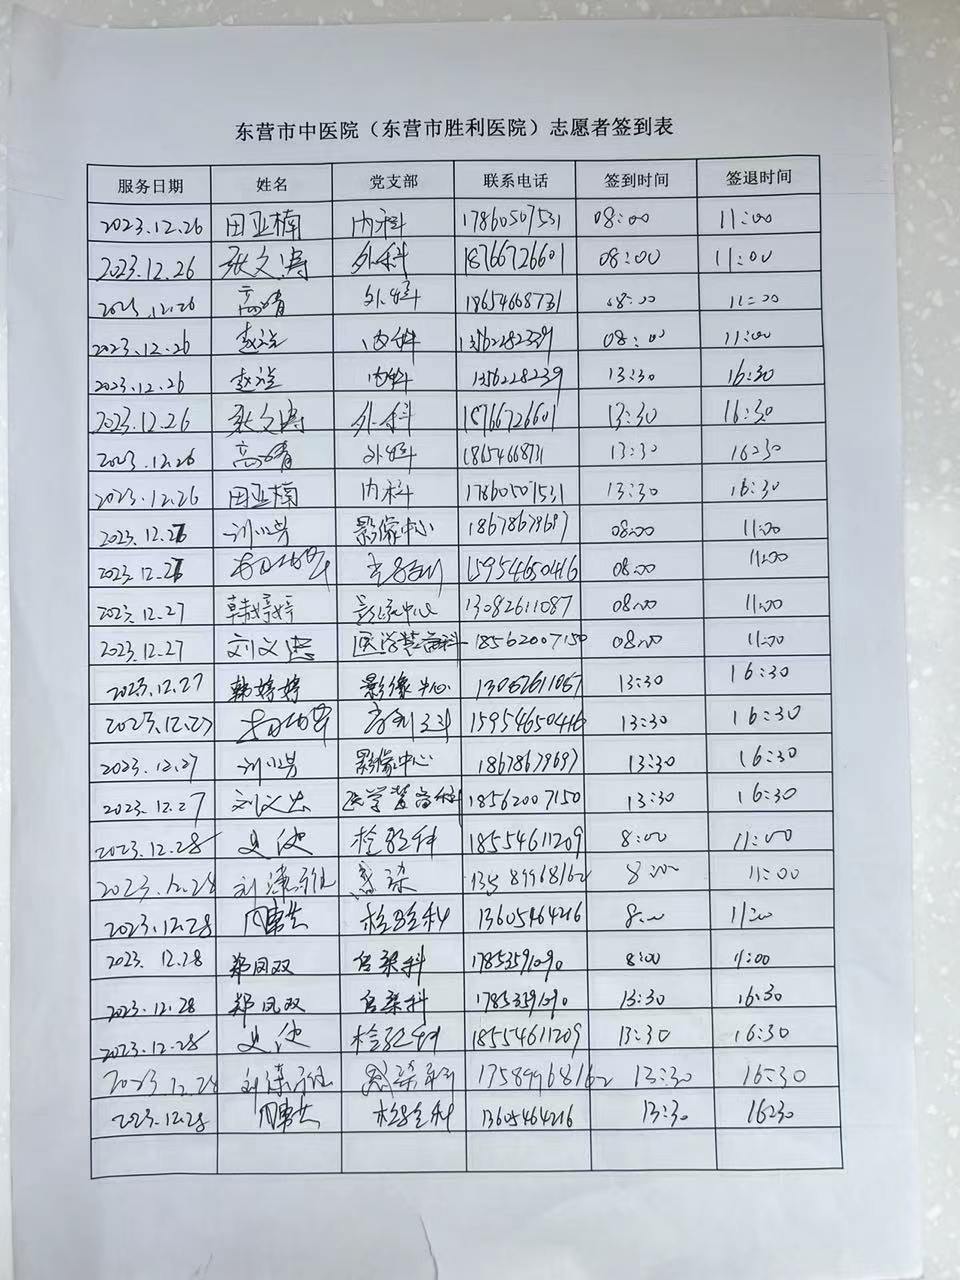 东营市中医院（东营市胜利医院）志愿者签到表
服务日期 姓名 党支部 联系电话 签到时间 签退时间
2023.12.26 田亚楠 内科 17860507531 08:00 11:00
2023.12.26 张文涛 外科 18766726601 08:00 11:00
2023.12.26 高晴 外科 18654668731 08:00 11:00
2023.12.26 赵 内科 13562282339 08:00 11:00
2023.12.26 赵 内科 1356228239 13:30 16:30
2023.12.26 张文涛 外科 18766726601 13:30 16:30
2023.12.26 高晴 外科 18654668731 13:30 16:30
2023.12.26 田亚楠 内科 17860507531 13:30 16:30
2023.12.27 刘 影像中心 18678679697 08:00 11:00
2023.12.27 15954650416 08:00 11:00
2023.12.27 韩婷婷 影像中心 13082611087 08:00 11:00
2023.12.27 刘义忠 医学整容科 18562007150 08:00 11:00
2023.12.27 韩婷婷 影像中心 13062611067 13:30 16:30
2023.12.27 15954650416 13:30 16:30
2023.12.27 刘 影像中心 18678679697 13:30 16:30
2023.12.27 刘义忠 医学整容科 18562007150 13:30 16:30
2023.12.28 检验科 18554611209 8:00 11:00
2023.12.28 刘 感染 13589968162 8:00 11:00
2023.12.28 周 检验科 13605464216 8:00 11:00
2023.12.28 郑凤双 感染科 17853591090 8:00 11:00
2023.12.28 郑凤双 感染科 17853591090 13:30 16:30
2023.12.28 检验科 18554611209 13:30 16:30
2023.12.28 刘 感染科 17589968162 13:30 16:30
2023.12.28 周 检验科 13605464216 13:30 16:30